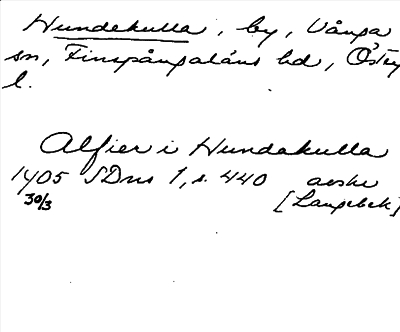 Hundekulla, by, Vånga
sn, Finspångaläns hd, Östg
l.
Alfier i Hundakulla
1405 SDns 1, s. 440 avskr
30/3 [Langebek]